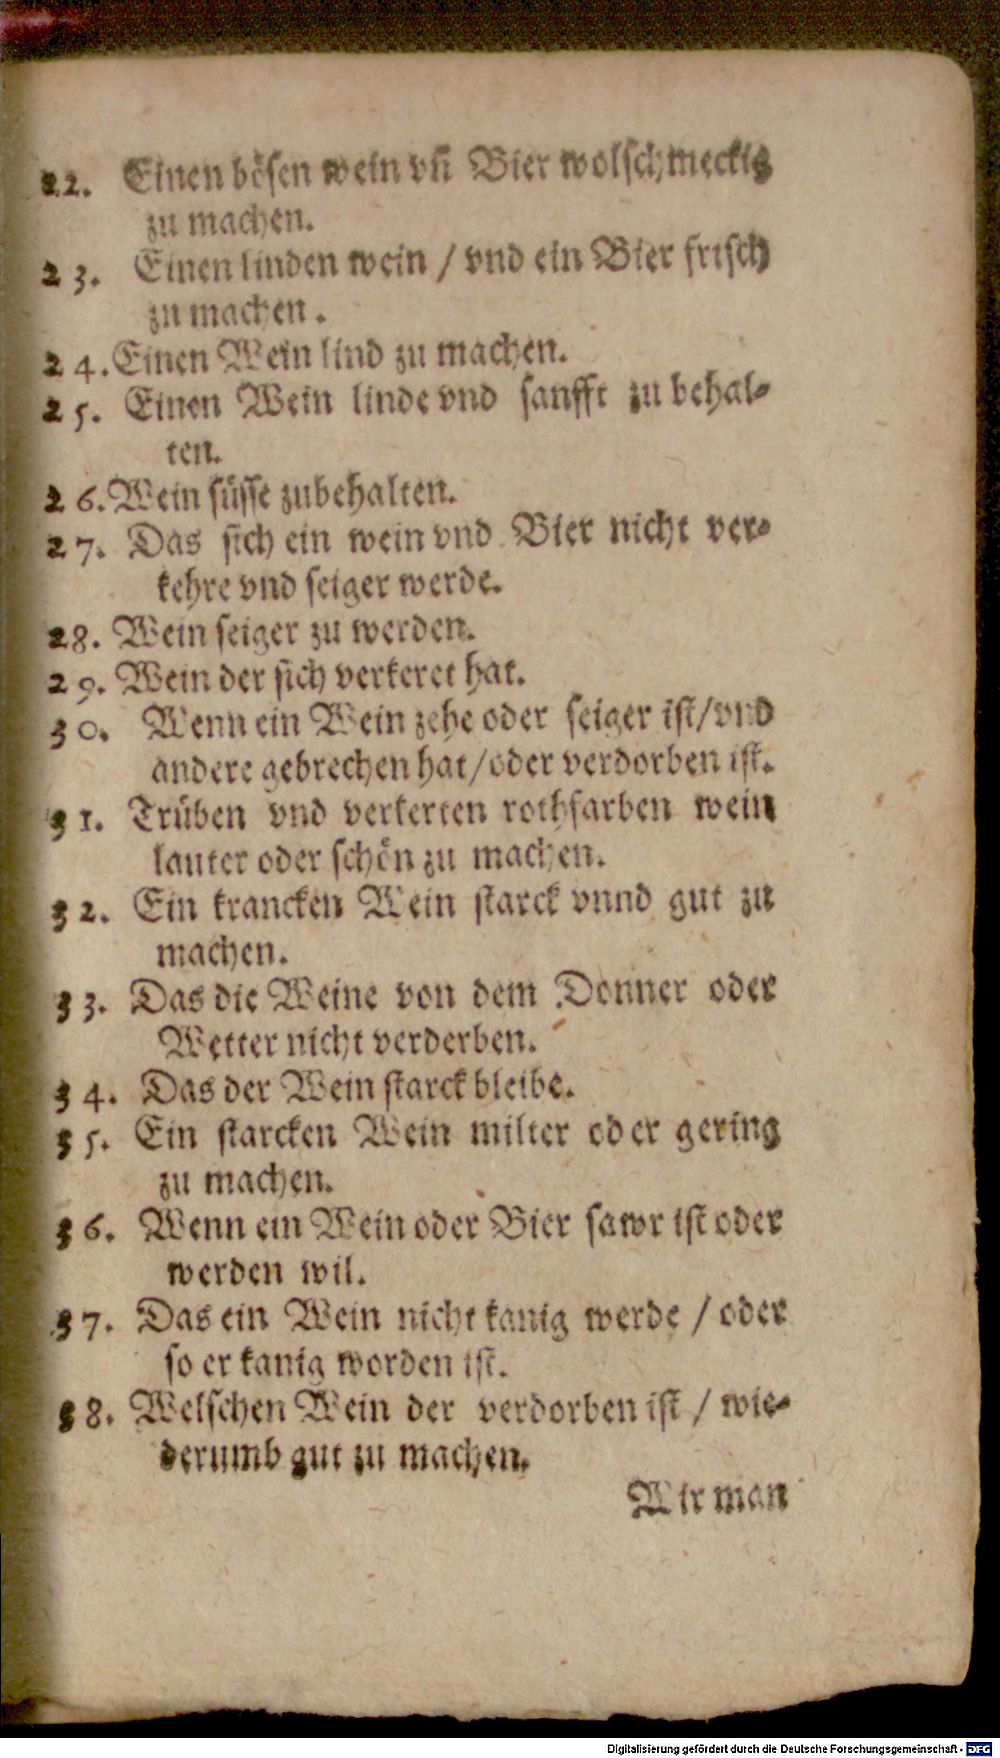 22. Einen bösen wein vñ Bier wolschmeckig
zu machen.
23. Einen linden wein / vnd ein Bier frisch
zu machen.
24. Einen Wein lind zu machen.
25. Einen Wein linde vnd sanfft zu behal-
ten.
26. Wein süsse zubehalten.
27. Das sich ein wein vnd Bier nicht ver-
kehre vnd seiger werde.
28. Wein seiger zu werden.
29. Wein der sich verkeret hat.
30. Wenn ein Wein zehe oder seiger ist/vnd
andere gebrechen hat/oder verdorben ist.
31. Trüben vnd verkerten rothfarben wein
lauter oder schön zu machen.
32. Ein krancken Wein starck vnnd gut zu
machen.
33. Das die Weine von dem Donner oder
Wetter nicht verderben.
34. Das der Wein starck bleibe.
35. Ein starcken Wein milter oder gering
zu machen.
36. Wenn ein Wein oder Bier sawr ist oder
werden wil.
37. Das ein Wein nicht kanig werde / oder
so er kanig worden ist.
38. Welschen Wein der verdorben ist / wie-
derumb gut zu machen.
Wir man
Digitalisierung gefördert durch die Deutsche Forschungsgemeinschaft - DFG